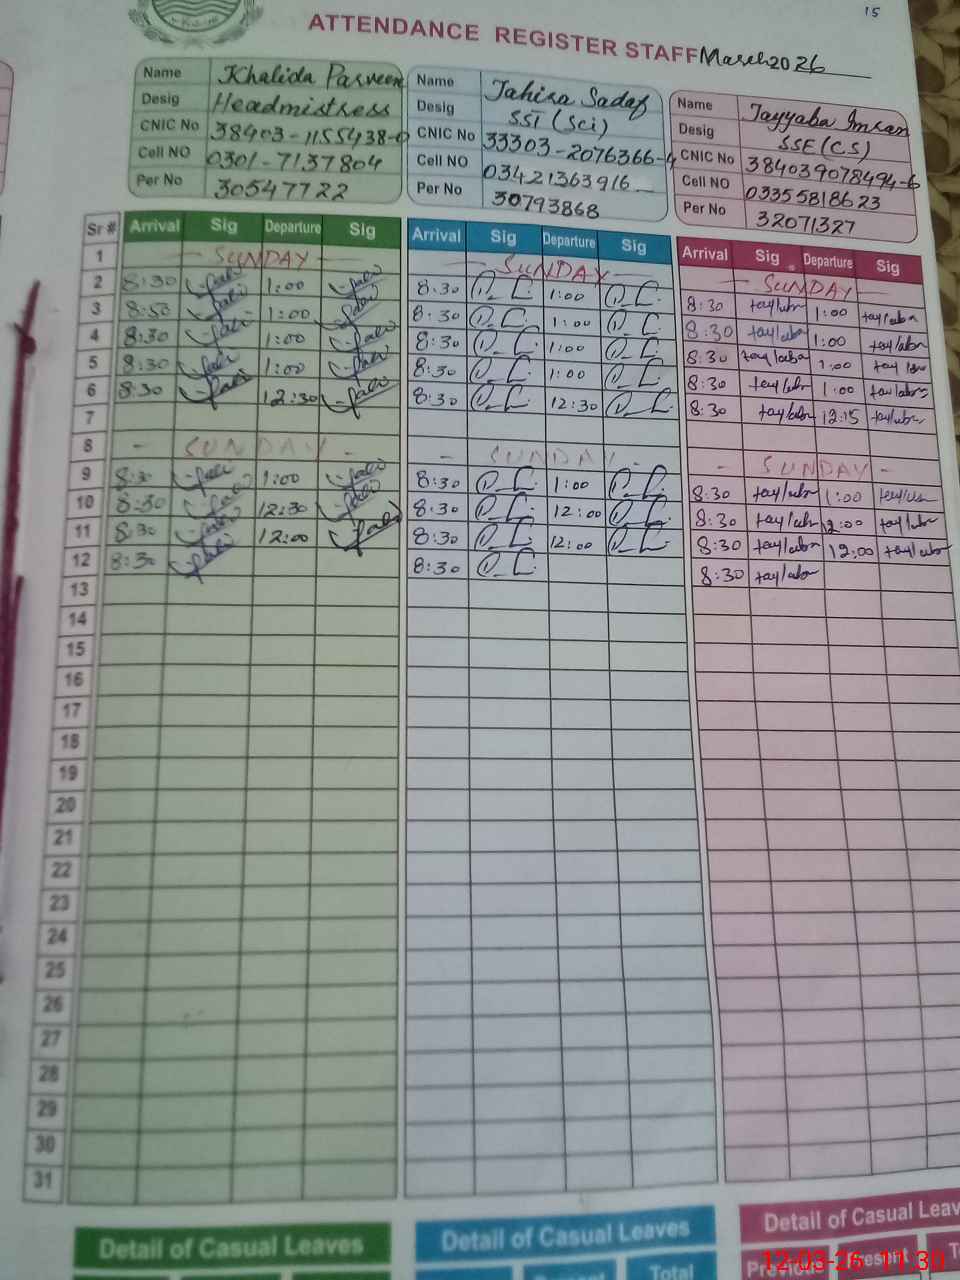 15
ATTENDANCE REGISTER STAFF March 2026
Name Khalida Parveen
Desig Headmistress
CNIC No 38403-1155438-0
Cell NO 0301-7137804
Per No 30547722
Name Tahira Sadaf
Desig SST (Sci)
CNIC No 33303-2076366-4
Cell NO 03421363916
Per No 30793868
Name Tayyaba Imran
Desig SSE (CS)
CNIC No 384039078494-6
Cell NO 03355818623
Per No 32071327
Sr # Arrival Sig Departure Sig Arrival Sig Departure Sig Arrival Sig Departure Sig
1 - SUNDAY - - SUNDAY - - SUNDAY -
2 8:30 1:00 8:30 1:00 8:30 1:00
3 8:30 1:00 8:30 1:00 8:30 1:00
4 8:30 1:00 8:30 1:00 8:30 1:00
5 8:30 1:00 8:30 1:00 8:30 1:00
6 8:30 12:30 8:30 12:30 8:30 12:15
7
8 - SUNDAY - - SUNDAY - - SUNDAY -
9 8:30 1:00 8:30 1:00 8:30 1:00
10 8:30 12:30 8:30 12:00 8:30 12:00
11 8:30 12:00 8:30 12:00 8:30 12:00
12 8:30 8:30 8:30
13
14
15
16
17
18
19
20
21
22
23
24
25
26
27
28
29
30
31
Detail of Casual Leaves Detail of Casual Leaves Detail of Casual Leav
Present Total Previous Present To
12-03-26 11:30